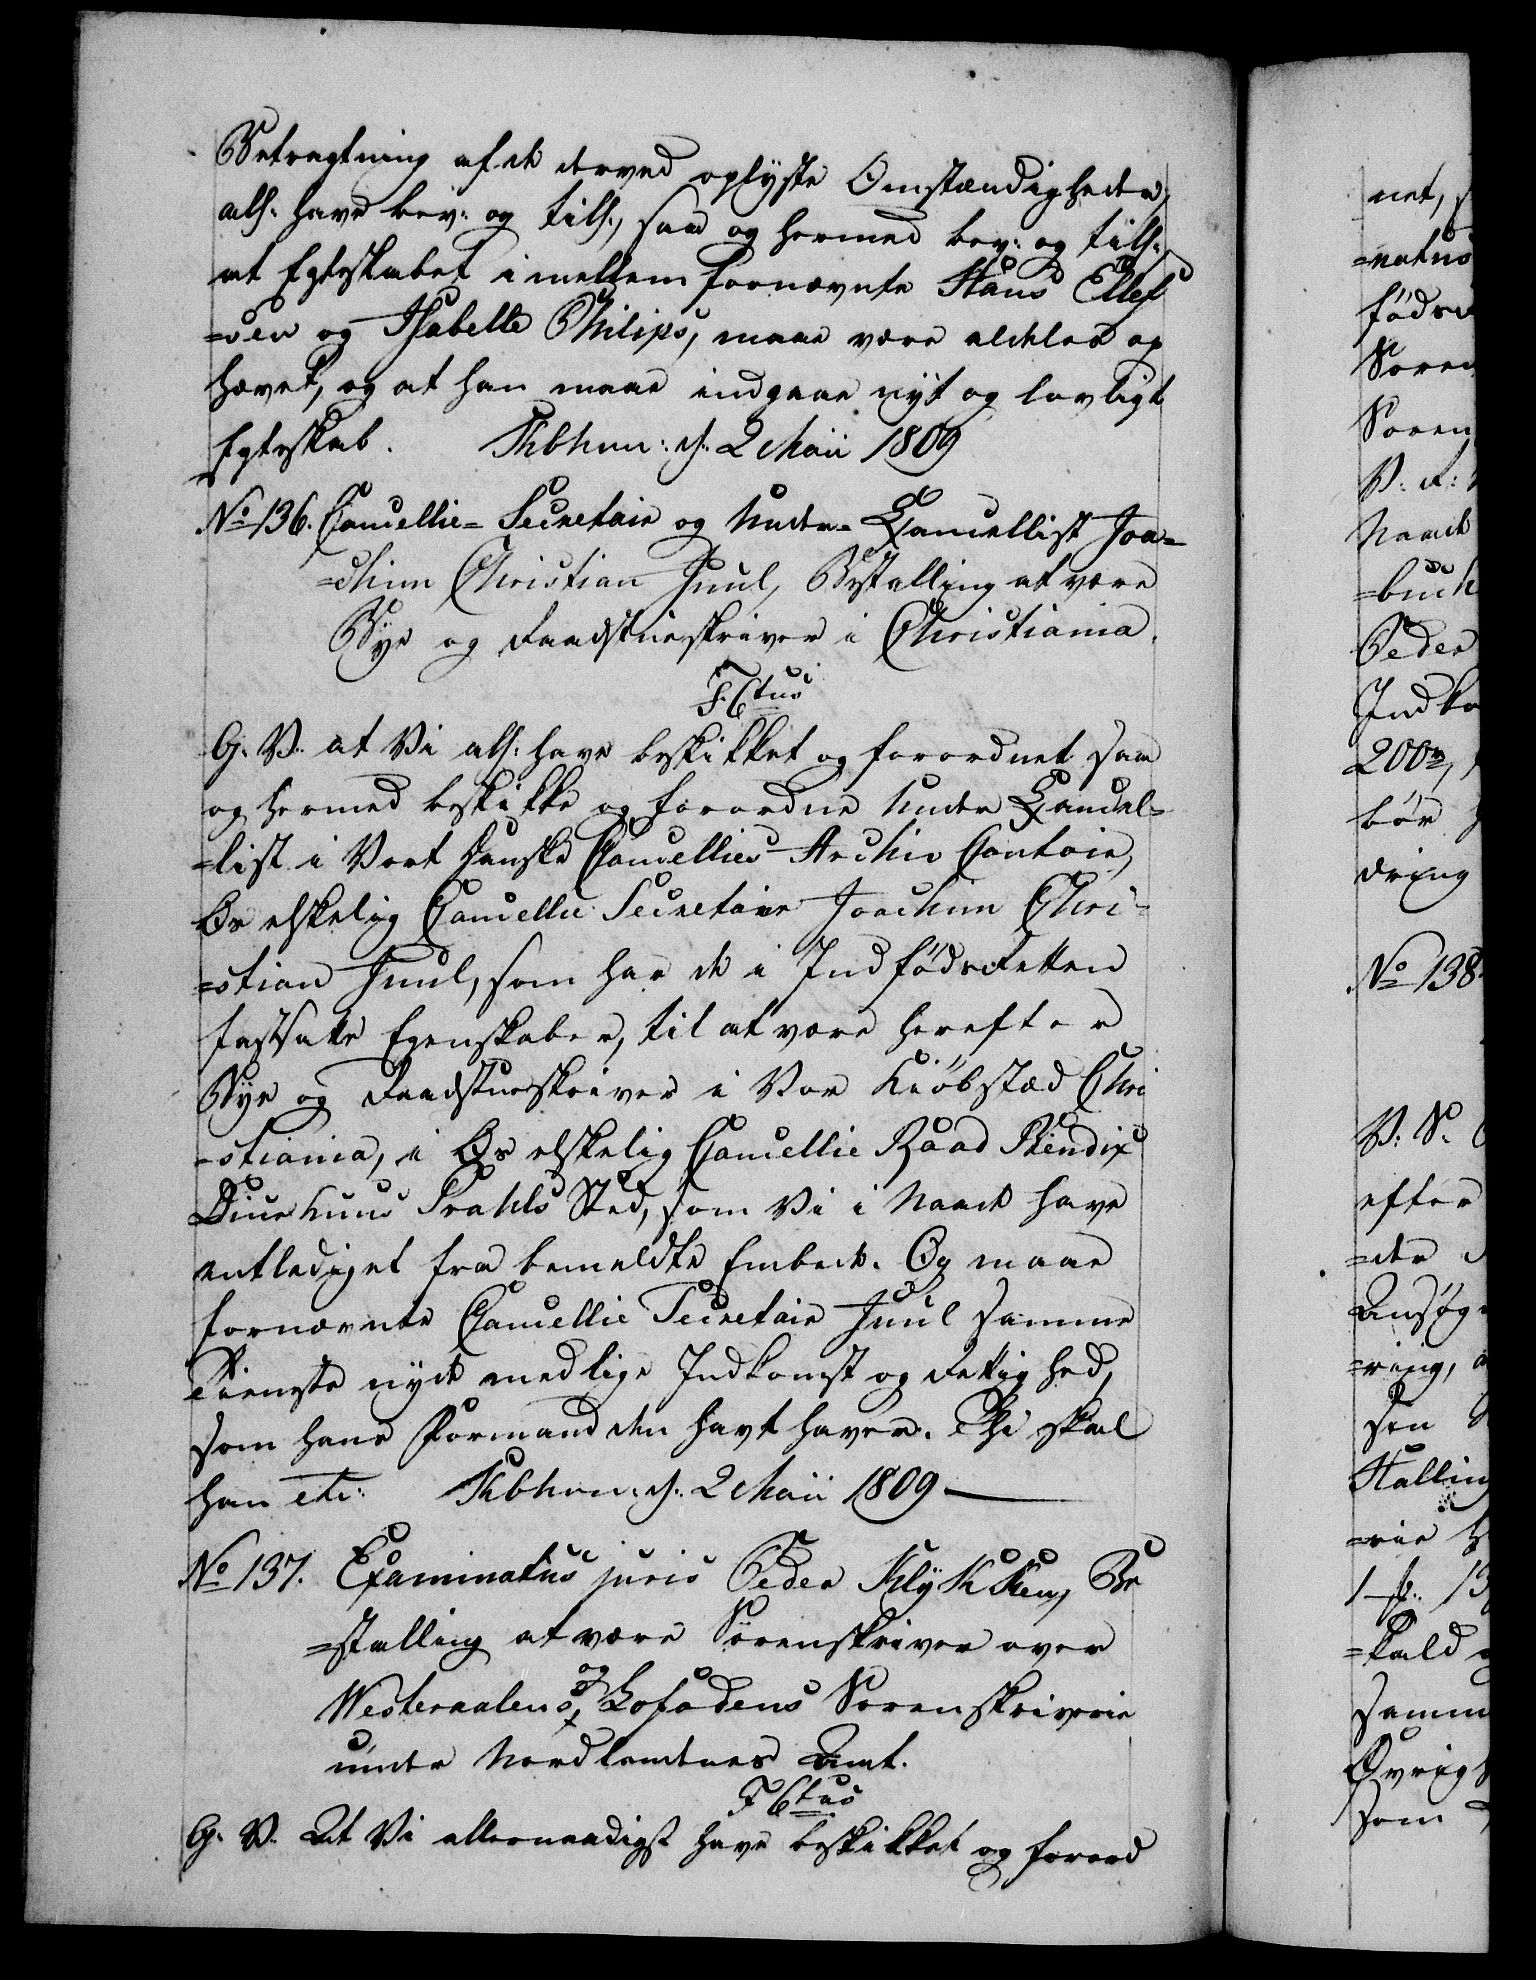 Betragtning af de derved oplyste Omstændigheder,
alh: have bev: og tilh:, saa og hermed bev: og tilh:
at Egteskabet imellem fornævnte Hans Ellef
=sen og Isabelle Philips, maae være aldeles op
hævet, og at han maae indgaae nyt og lovligt
Egteskab. Kbhvn: d. 2 Maii 1809
No 136. Cancellie= Secretair og Under= Cancellist Joa=
=chim Christian Juul, Bestalling at være
Bye og Raadstueskriver i Christiania.
F. 6tus
G. V. at Vi alh: have beskikket og forordnet saa
og hermed beskikke og forordne Under Cancel=
=list i Vort danske Cancellies Archiv Contoir,
Os elskelig Cancellie Secretair Joachim Chri=
=stian Juul, som har de i Indfødsretten
fastsatte Egenskaber, til at være herefter
Bye og Raadstueskriver i Vor Kiøbstæd Chri
=stiania, i Os elskelig Cancellie Raad Bendix
Diurhuus Prahls Sted, som Vi i Naade have
entlediget fra bemeldte Embede. Og maae
fornævnte Cancellie Secretair Juul samme
Tieneste nyde med lige Indkomst og Rettighed,
som hans Formand den havt haver. Thi skal
han etc: Kbhvn: d. 2 Maii 1809
No 137. Examinatus juris Peder Klykken, Be
=stalling at være Sorenskriver over
Westeraalens og Lofodens Sorenskriverie
under Nordlandenes Amt.
F 6tus
G. V. At Vi allernaadigst have beskikket og forord
net,
=natus
føds
Soren
Soren
Naade
=buck
Peder
200
bør
dring
No 138
efter
=der
Ansøg
=ring,
sen
Halling
=rie
=kald
samme
Øvrig
som